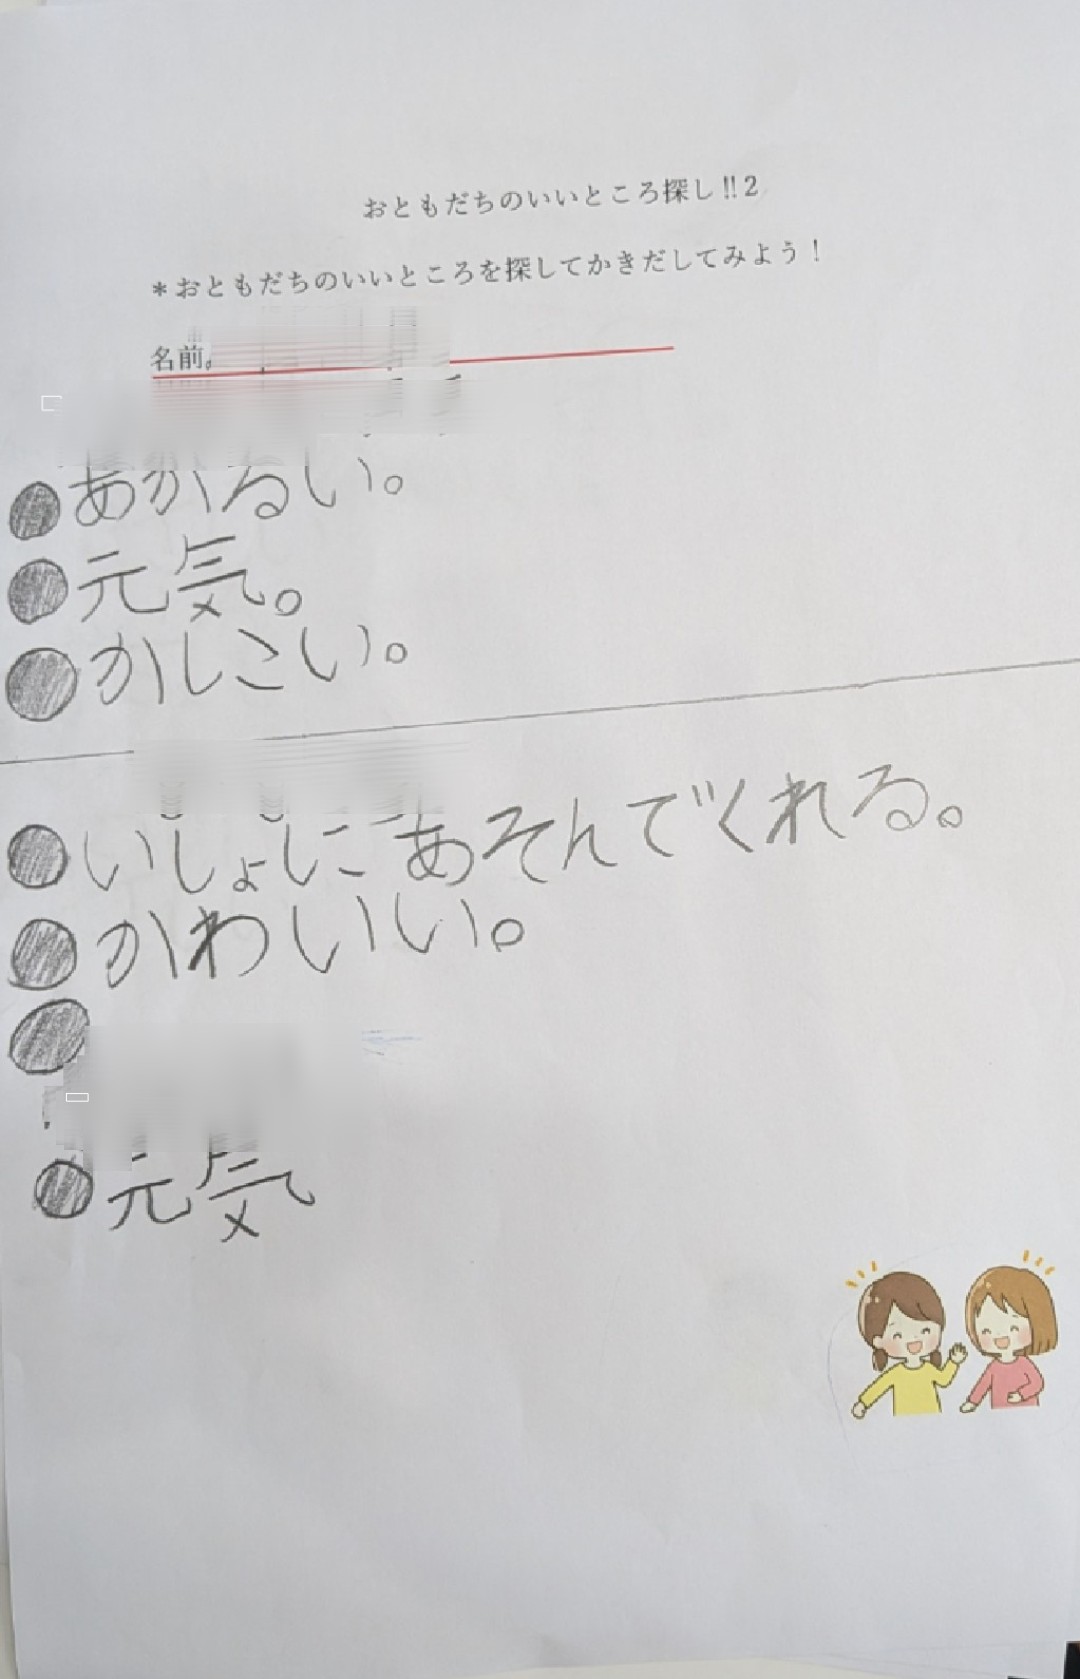 おともだちのいいところ探し!!2
*おともだちのいいところを探してかきだしてみよう!
名前。
●あかるい。
●元気。
●かしこい。
●いしょにあそんでくれる。
●かわいい。
●
●元気